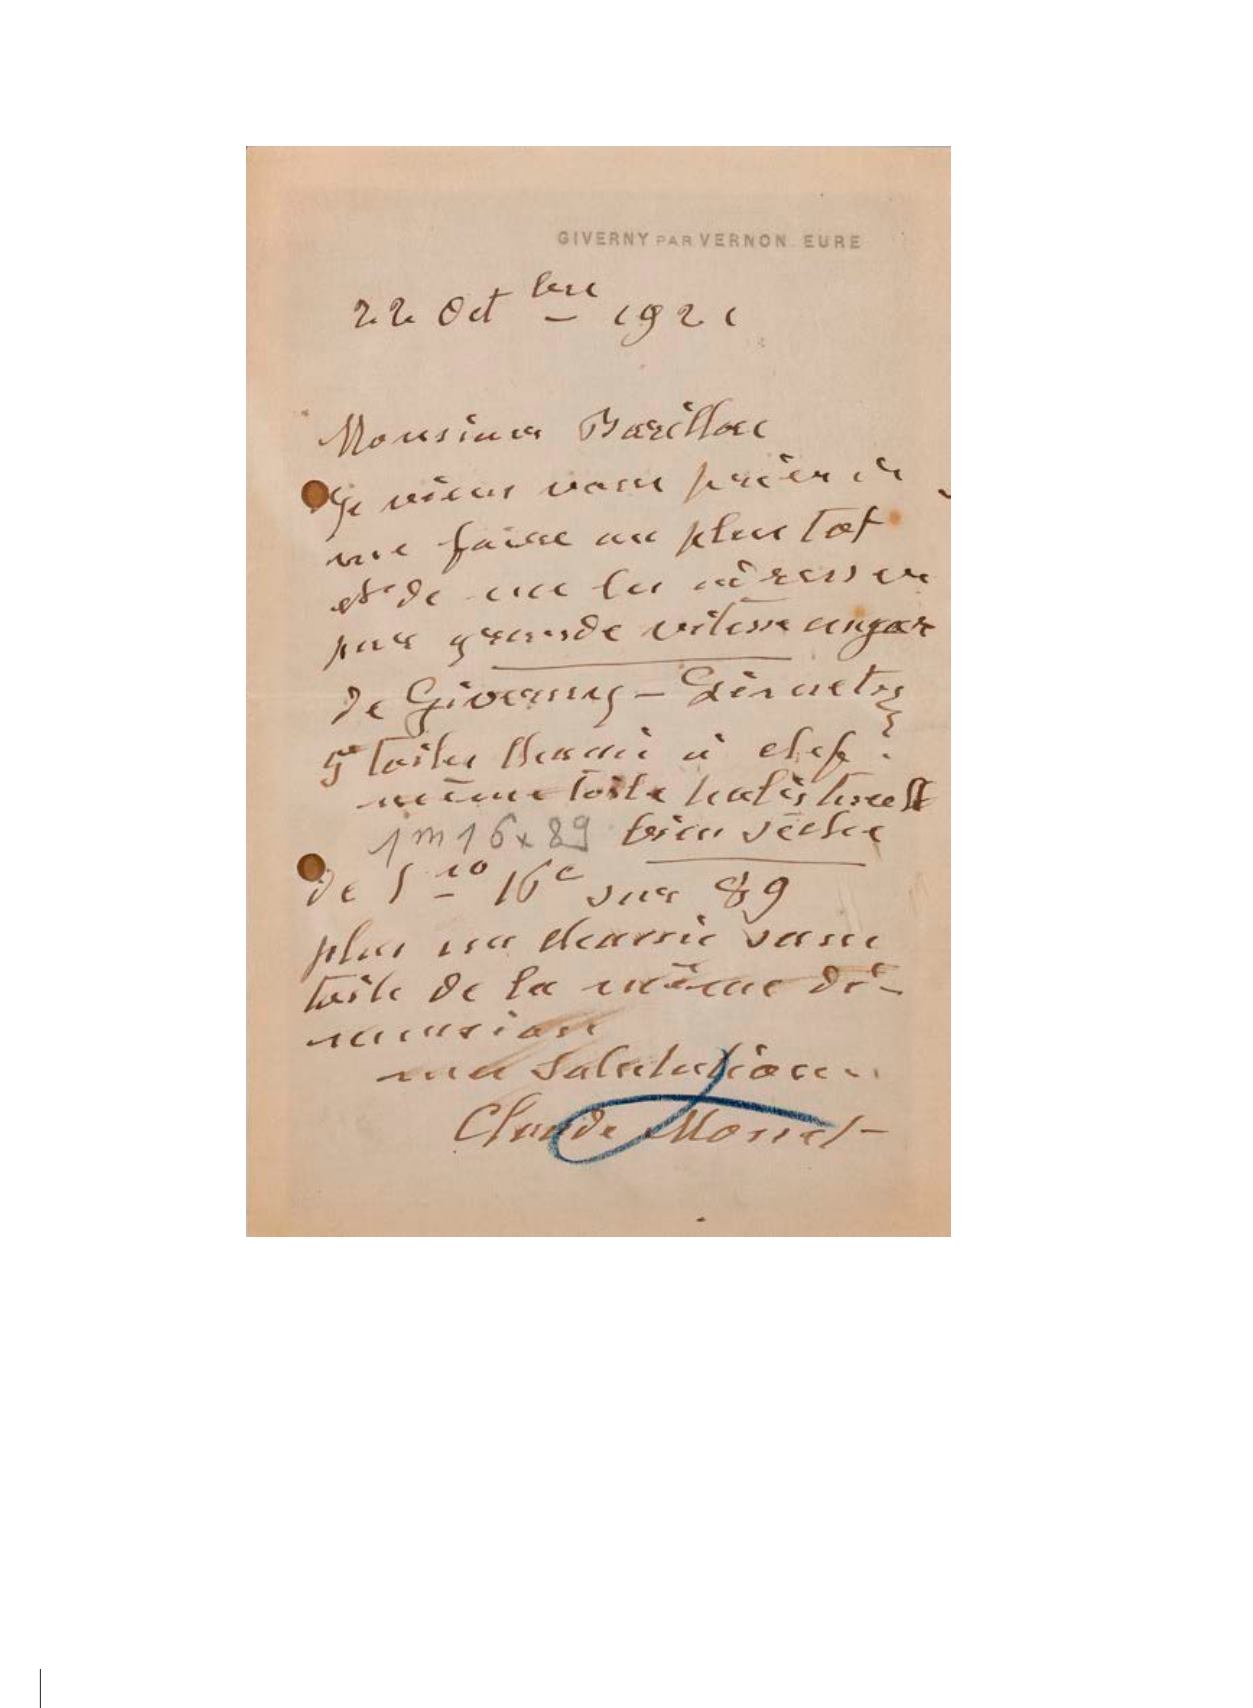 GIVERNY PAR VERNON. EURE
22 Octbre – 1921
Monsieur Barillon
Je viens vous prier de
me faire au plus tot
et de me les adresser
par grande vitesse en gare
de Giverny – Limetz
5 toiles à clef
même toile
1m16x89 bien sèche
de 1m 16c sur 89
plus un chassis sans
toile de la même di-
mension
mes salutations
Claude Monet